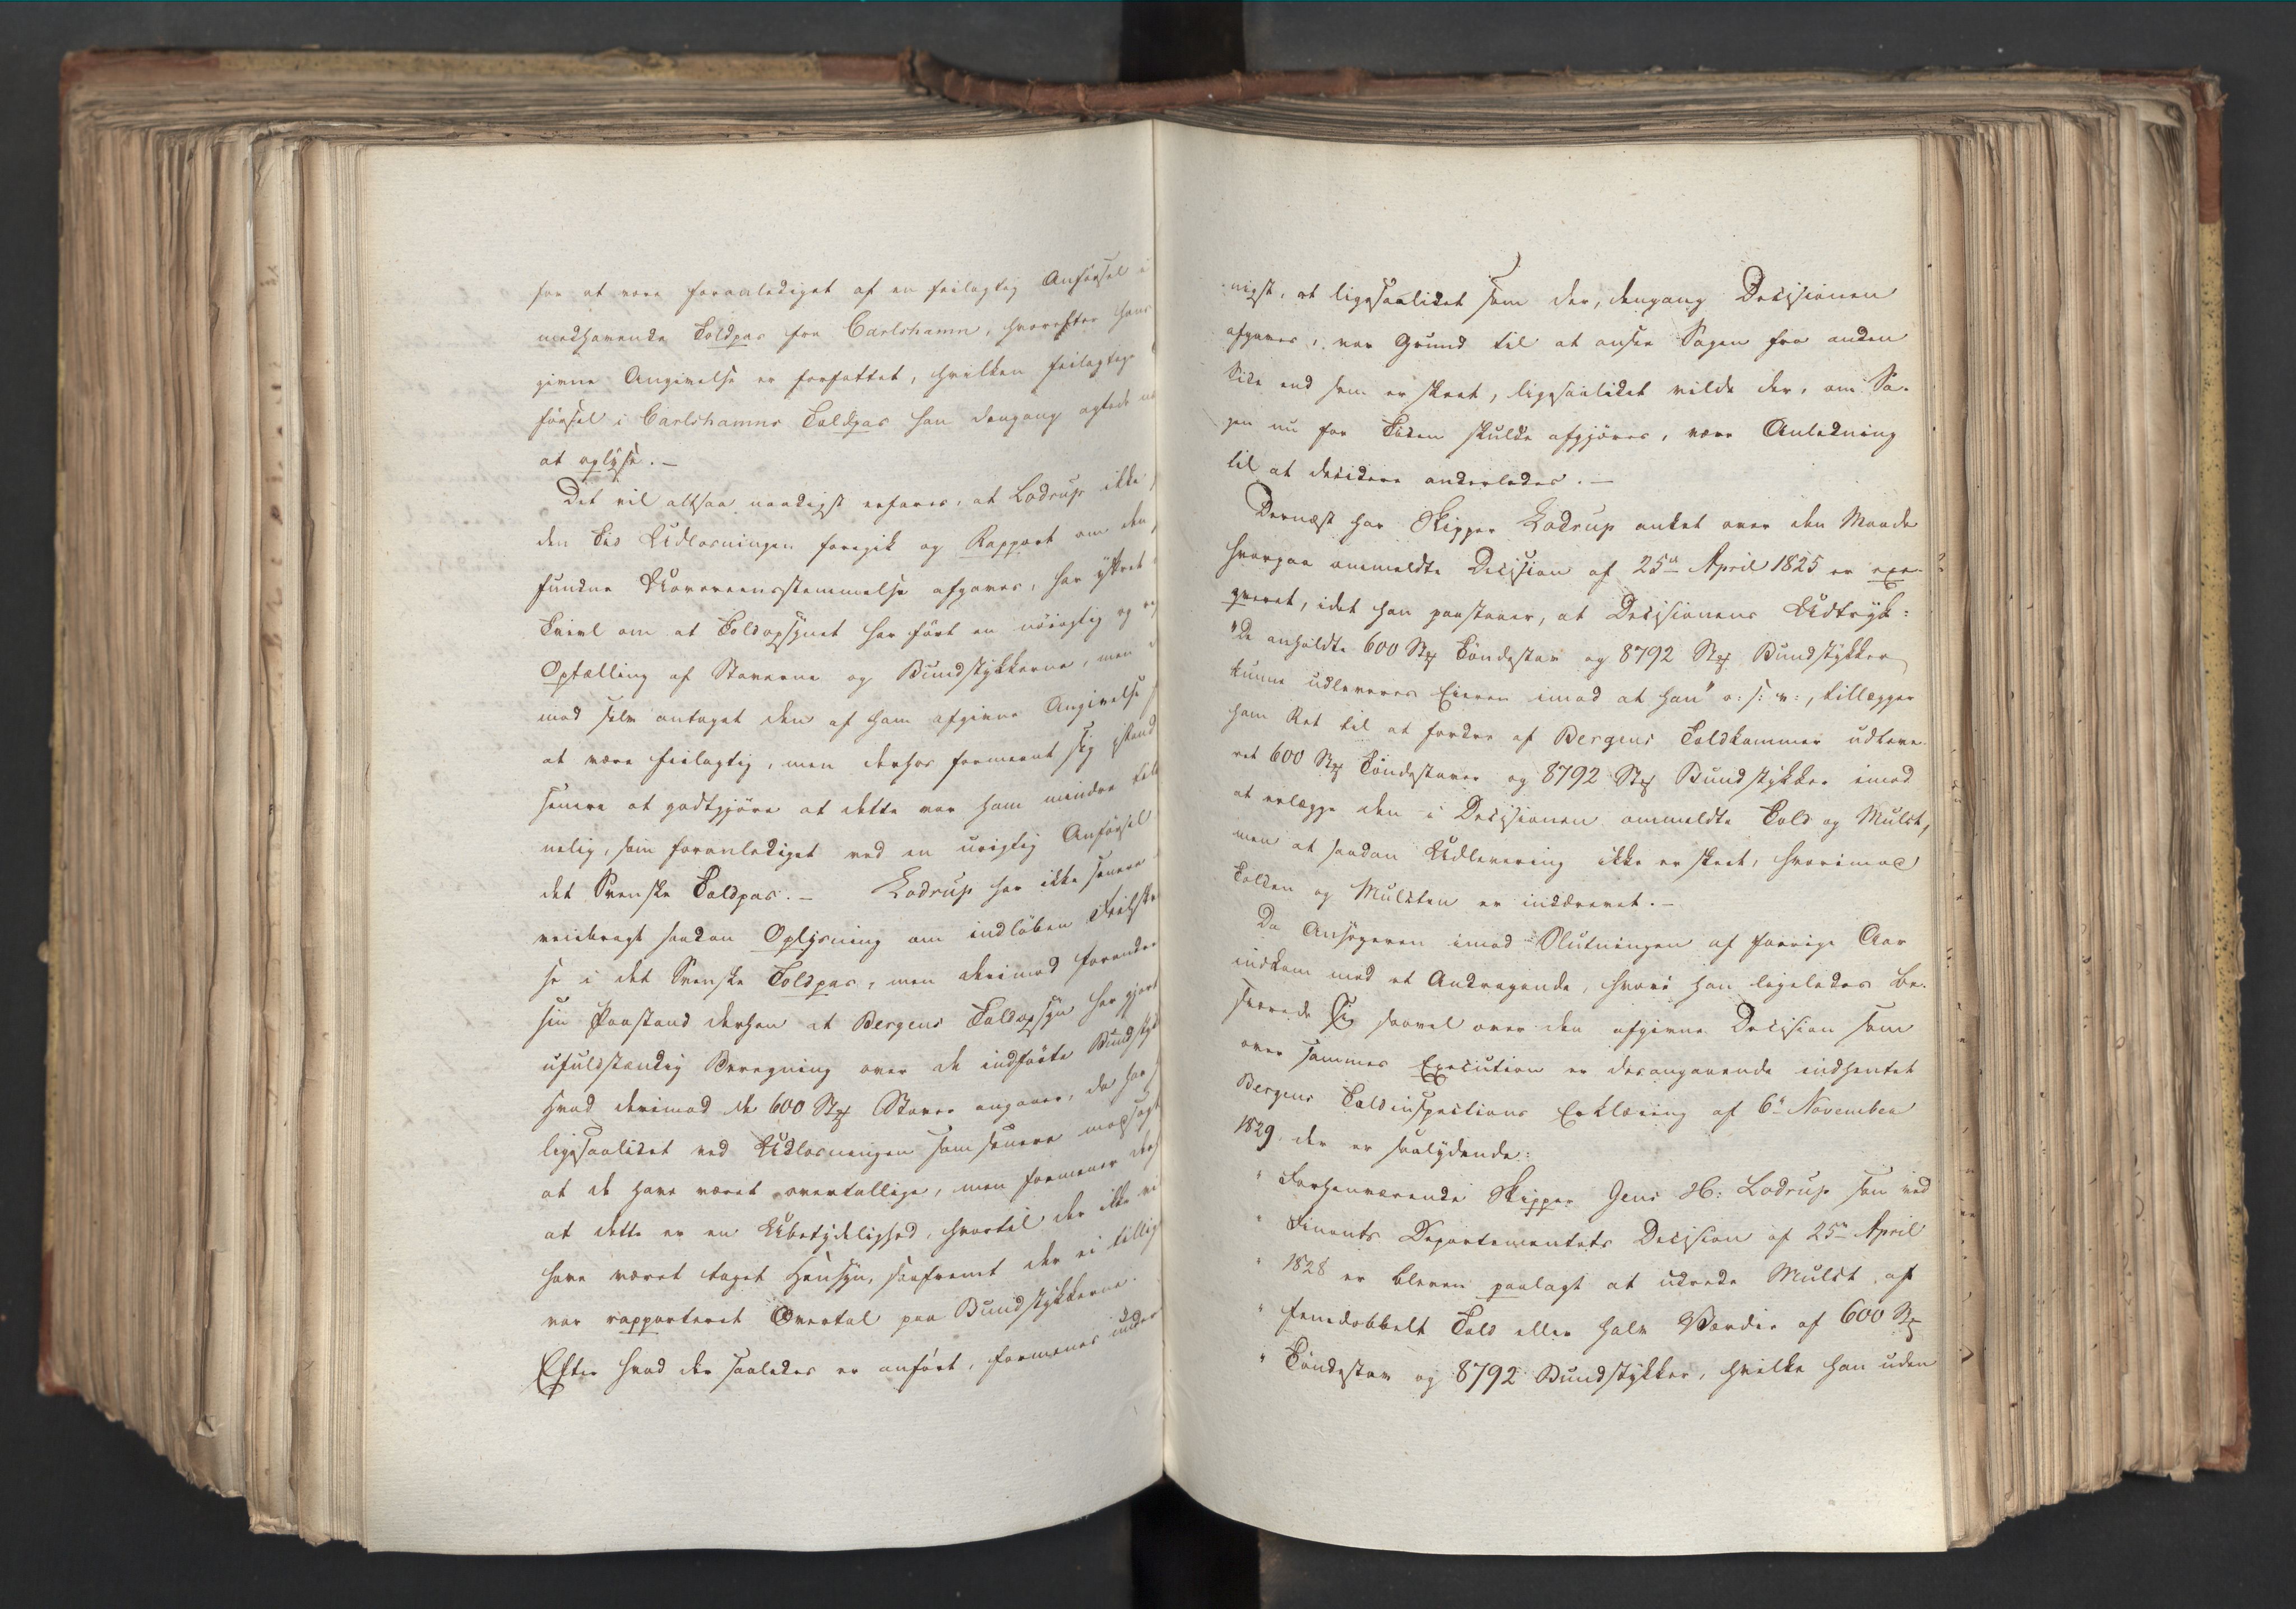 for at være foranlediget af en feilagtig Anførsel i
medhavende Toldpas fra Carlshamn, hvorefter hans
givne Angivelse er forfattet, hvilken feilagtige
førsel i Carlshamns Toldpas han dengang agtede
at oplyse. –
Det vil altsaa naadigst erfares, at Lodrup ikke,
den Tid Udlosningen foregik og Rapport om den
fundne Uovereensstemmelse afgaves, har yttret
Tvivl om at Toldopsynet har ført en nøiagtig og
Optælling af Staverne og Bundstykkerne, men
mod selv antaget den af ham afgivne Angivelse
at være feilagtig, men derhos formeent sig istand
senere at godtgjøre at dette var ham mindre til
nelig, som foranlediget ved en urigtig Anførsel
det Svenske Toldpas. – Lodrup har ikke senere
veiebragt saadan Oplysning om indløben Feilskri
se i det Svenske Toldpas, men derimod forandret
sin Paastand derhen at Bergens Toldopsyn har gjort
ufuldstændig Beregning over de indførte Bundstyk
Hvad derimod de 600 Stk Staver angaaer, da har
ligesaalidet ved Udlosningen som senere modsagt
at de have været overtallige, men formener derhos
at dette er en Ubetydelighed, hvortil der ikke vi
have været taget Hensyn, saafremt der ei tillig
var rapporteret Overtal paa Bundstykkerne.
Efter hvad der saaledes er anført, formenes under
nigst, at ligesaalidet som der, dengang Decisionen
afgaves, var Grund til at ansee Sagen fra anden
Side end som er skeet, ligesaalidet vilde der, om Sa-
gen nu for Tiden skulde afgjøres, være Anledning
til at decidere anderledes. –
Dernæst har Skipper Lodrup anket over den Maade
hvorpaa ommeldte Decision af 25de April 1825 er exe-
qveret, idet han paastaaer, at Decisionens Udtryk:
"De anholdte 600 Stk Tøndestav og 8792 Stk Bundstykker
kunne udleveres Eieren imod at han" o: s: v:, tillægger
ham Ret til at fordre af Bergens Toldkammer udleve-
ret 600 Stk Tøndestaver og 8792 Stk Bundstykker imod
at erlægge den i Decisionen ommeldte Told og Mulct,
men at saadan Udlevering ikke er skeet, hvorimod
Tolden og Mulcten er inddrevet. –
Da Ansøgeren imod Slutningen af forrige Aar
indkom med et Andragende, hvori han ligeledes be-
sværede sig saavel over den afgivne Decision som
over sammes Execution er desangaaende indhentet
Bergens Toldinspections Erklæring af 6te November
1829, der er saalydende:
" Forhenværende Skipper Jens H: Lodrup som ved
" Finants Departementets Decision af 25de April
" 1828 er bleven paalagt at udrede Mulct af
" femdobbelt Told eller halv Værdie af 600 Stk
" Tøndestav og 8792 Bundstykker, hvilke han uden